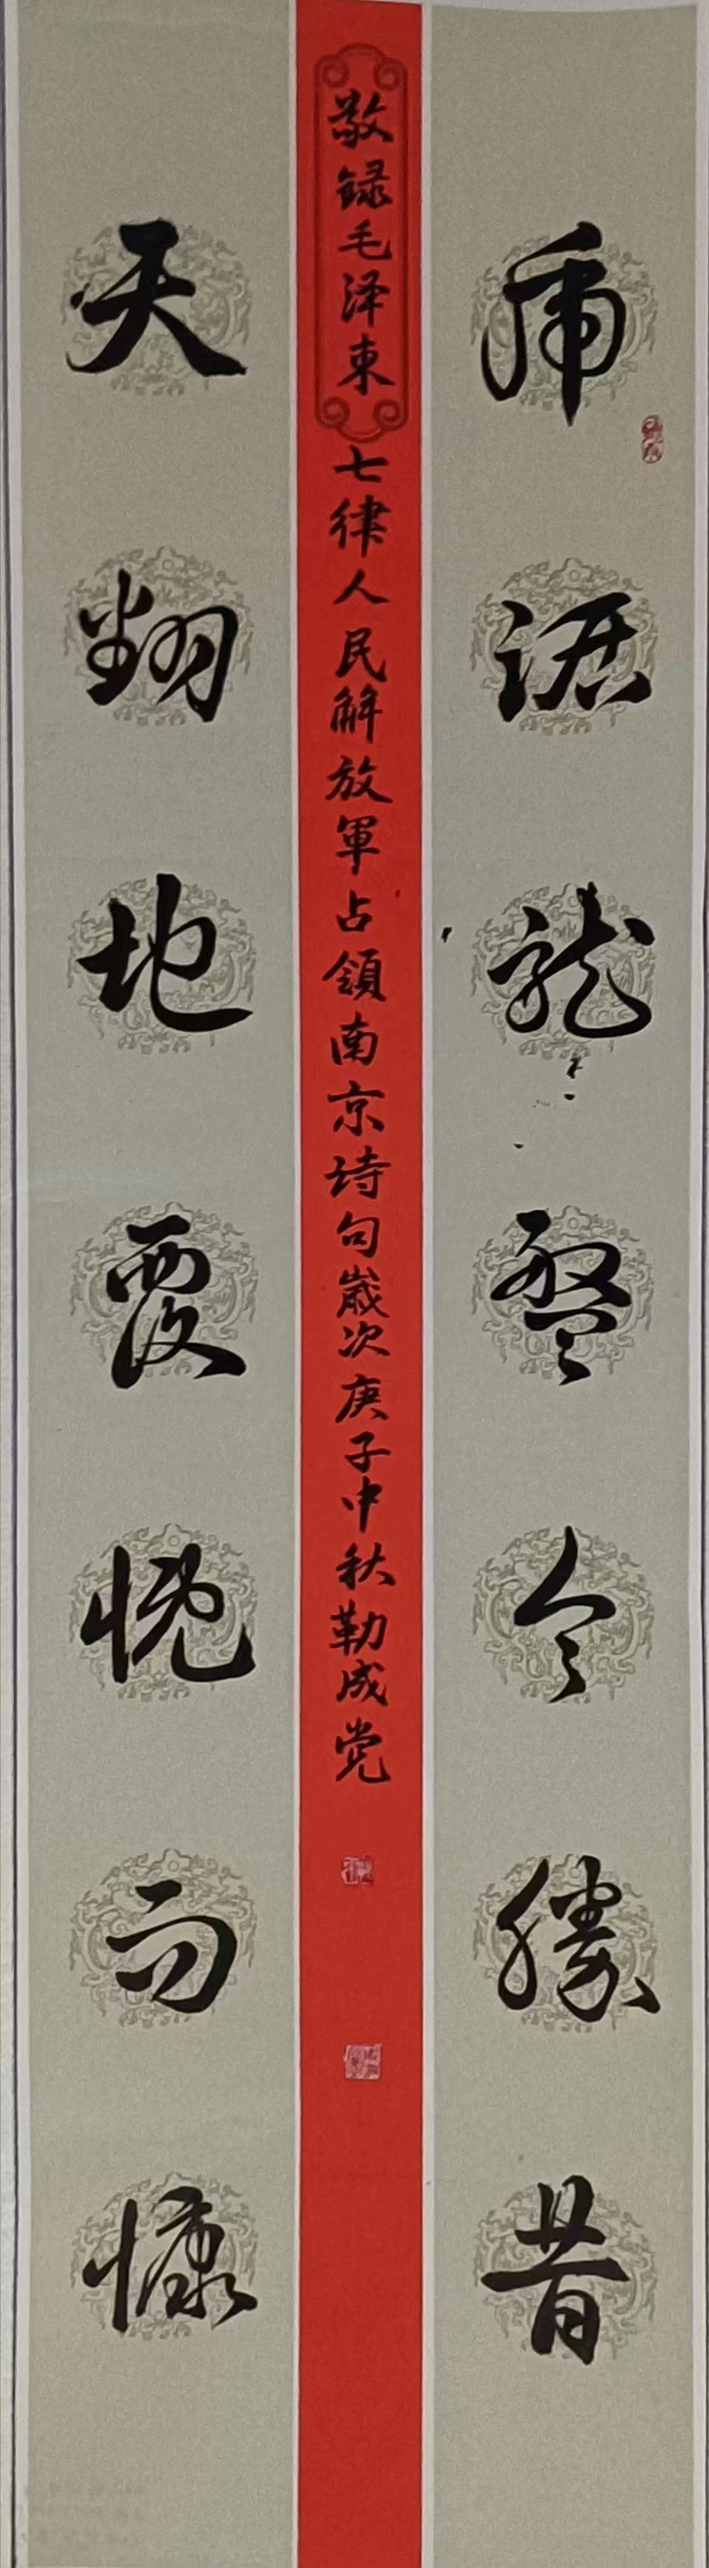 虎踞龙盤今勝昔
敬録毛泽東七律人民解放軍占領南京诗句嵗次庚子中秋勒成党
天翻地覆慨而慷